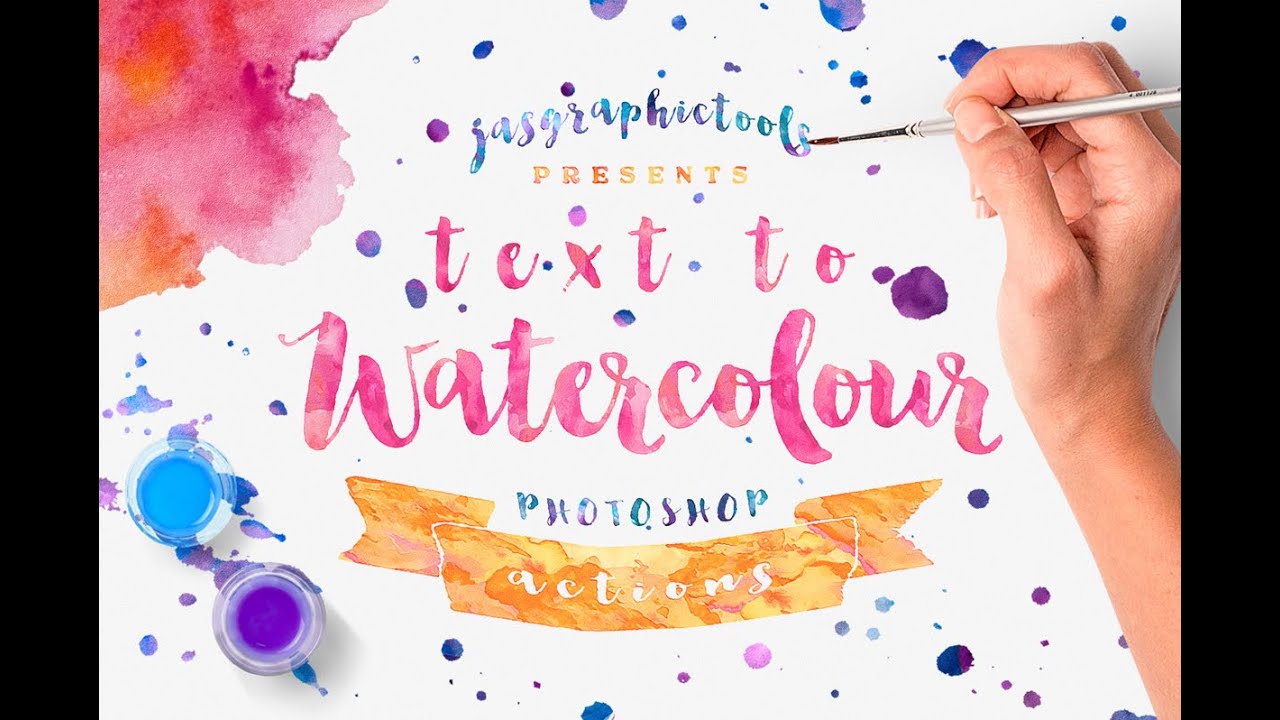 jasgraphictools
PRESENTS
text to
Watercolour
PHOTOSHOP
actions